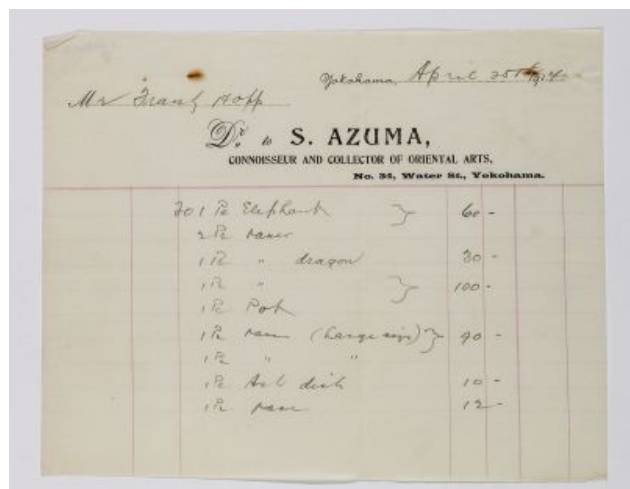 Yokohama, April 25th 1914
Mr Franz Hopp
Dr. to S. AZUMA,
CONNOISSEUR AND COLLECTOR OF ORIENTAL ARTS,
No. 34, Water St., Yokohama.
1 Pc Elephant } 60 -
2 Pc vases
1 Pc " dragon 30 -
1 Pc " } 100 -
1 Pc Pot
1 Pc vase (Large size) } 90 -
1 Pc " "
1 Pc Ash dish 10 -
1 Pc vase 12 -